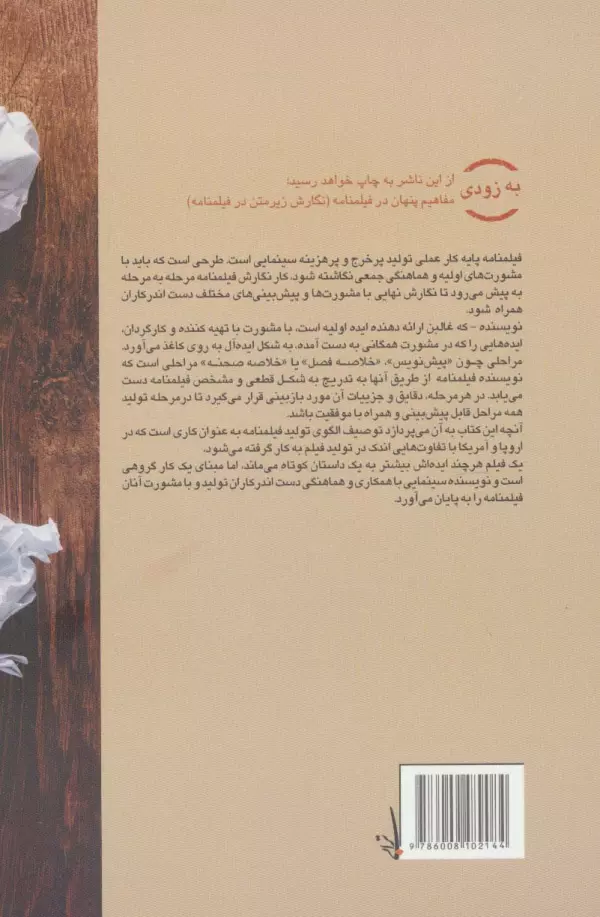 به زودی
از این ناشر به چاپ خواهد رسید:
مفاهیم پنهان در فیلمنامه (نگارش زیرمتن در فیلمنامه)
فیلمنامه پایه کار عملی تولید پرخرج و پرهزینه سینمایی است. طرحی است که باید با
مشورت‌های اولیه و هماهنگی جمعی نگاشته شود. کار نگارش فیلمنامه مرحله به مرحله
به پیش می‌رود تا نگارش نهایی با مشورت‌ها و پیش‌بینی‌های مختلف دست اندرکاران
همراه شود.
نویسنده – که غالبن ارائه دهنده ایده اولیه است، با مشورت با تهیه کننده و کارگردان،
ایده‌هایی را که در مشورت همگانی به دست آمده، به شکل ایده‌آل به روی کاغذ می‌آورد.
مراحلی چون «پیش‌نویس»، «خلاصه فصل» یا «خلاصه صحنه» مراحلی است که
نویسنده فیلمنامه از طریق آنها به تدریج به شکل قطعی و مشخص فیلمنامه دست
می‌یابد. در هرمرحله، دقایق و جزییات آن مورد بازبینی قرار می‌گیرد تا درمرحله تولید
همه مراحل قابل پیش‌بینی و همراه با موفقیت باشد.
آنچه این کتاب به آن می‌پردازد توصیف الگوی تولید فیلمنامه به عنوان کاری است که در
اروپا و آمریکا با تفاوت‌هایی اندک در تولید فیلم به کار گرفته می‌شود.
یک فیلم هرچند ایده‌اش بیشتر به یک داستان کوتاه می‌ماند، اما مبنای یک کار گروهی
است و نویسنده سینمایی با همکاری و هماهنگی دست اندرکاران تولید و با مشورت آنان
فیلمنامه را به پایان می‌آورد.
9 786008 102144